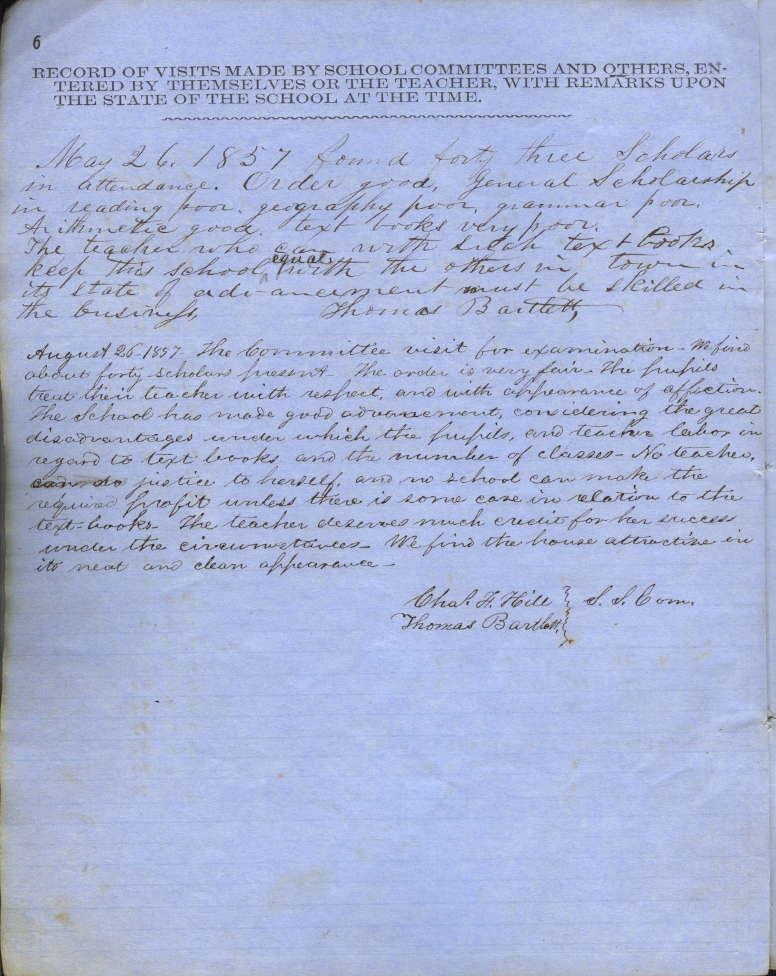 6
RECORD OF VISITS MADE BY SCHOOL COMMITTEES AND OTHERS, EN-
TERED BY THEMSELVES OR THE TEACHER, WITH REMARKS UPON
THE STATE OF THE SCHOOL AT THE TIME.
May 26, 1857 found forty three Scholars
in attendance. Order good, General Scholarship
in reading poor, geography poor, grammar poor,
Arithmetic good. text books very poor.
The teacher who can with such text books
keep this school equal with the others in town in
its state of advancement must be skilled in
the business, Thomas Bartlett,
August 26-1857- The Committee visit for examination- We find
about forty scholars present- The order is very fair- The pupils
treat their teacher with respect, and with appearance of affection.
The School has made good advancement, considering the great
disadvantages under which the pupils, and teacher labor in
regard to text books, and the number of classes- No teacher,
can do justice to herself, and no school can make the
required profit unless there is some care in relation to the
text-books- The teacher deserves much credit for her success
under the circumstances- We find the house attractive in
its neat and clean appearance-
Chas. F. Hill } S. S. Com.
Thomas Bartlett }